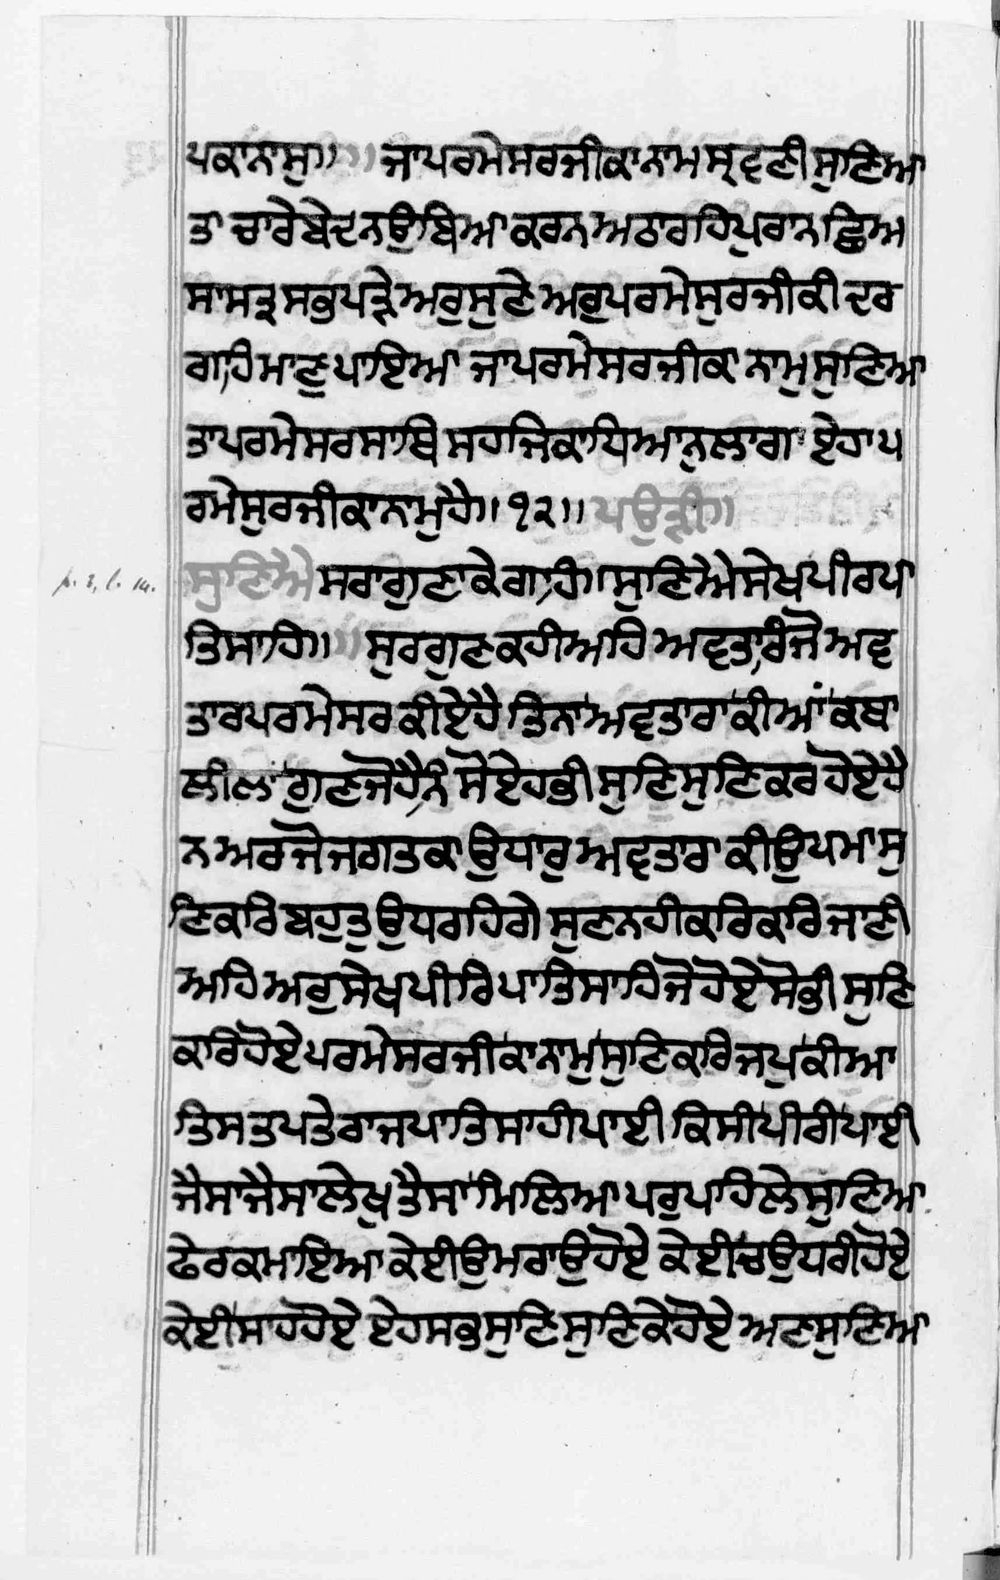 ਪਕਾਨਾਸੁ॥ ॥ ਜਾਪਰਮੇਸਰਜੀਕਾਨਾਮਸ੍ਰਵਣੀਸੁਣਿਆ
ਤਾਚਾਰੇਬੇਦਨਉਬਿਆਕਰਨਅਠਾਰਹਿਪੁਰਾਨਛਿਅ
ਸਾਸਤ੍ਰਸਭੁਪੜੇਅਰੁਸੁਣੇਅਰੁਪਰਮੇਸੁਰਜੀਕੀਦਰ
ਗਾਹਿਮਾਣੁਪਾਇਆ ਜਾਪਰਮੇਸਰਜੀਕਾਨਾਮੁਸੁਣਿਆ
ਤਾਪਰਮੇਸਰਸਾਥਿਸਹਜਿਕਾਧਿਆਨੁਲਾਗਾਏਹਾਪ
ਰਮੇਸੁਰਜੀਕਾਨਾਮੁਹੈ॥੧੨॥ਪਉੜੀ॥
ਸੁਣਿਐਸਰਾਗੁਣਾਕੇਗਾਹ॥ਸੁਣਿਐਸੇਖਪੀਰਪਾ
ਤਿਸਾਹਿ॥ ॥ਸੁਰਗੁਣਕਹੀਅਹਿਅਵਤਾਰਿਜੋਅਵ
ਤਾਰਪਰਮੇਸਰਕੀਏਹੈਤਿਨਾਅਵਤਾਰਾਕੀਆਂਕਥਾ
ਲੀਲਾਗੁਣਜੋਹੈਨਿਸੋਏਹਭੀਸੁਣਿਸੁਣਿਕਰਹੋਏਹੈ
ਨਅਰਜੋਜਗਤਕਾਉਧਾਰੁਅਵਤਾਰਾਕੀਉਪਮਾਸੁ
ਣਿਕਰਿਬਹੁਤੁਉਧਰਹਿਗੇਸੁਣਨਹੀਕਰਿਕਰਿਜਾਣੀ
ਅਹਿਅਰੁਸੇਖਪੀਰਿਪਾਤਿਸਾਹਿਜੋਹੋਏਸੋਭੀਸੁਣਿ
ਕਰਿਹੋਏਪਰਮੇਸਰਜੀਕਾਨਾਮੁਸੁਣਿਕਰਿਜਪੁਕੀਆ
ਤਿਸਤਪਤੇਰਾਜਪਾਤਿਸਾਹੀਪਾਈਕਿਸੀਪੀਰੀਪਾਈ
ਜੈਸਾਜੈਸਾਲੇਖੁਤੈਸਾਮਿਲਿਆਪਰੁਪਹਿਲੇਸੁਣਿਆ
ਫੇਰਕਮਾਇਆਕੇਈਉਮਰਾਉਹੋਏਕੇਈਚਉਧਰੀਹੋਏ
ਕੇਈਸਾਹਹੋਏਏਹਸਭੁਸੁਣਿਸੁਣਿਕੇਹੋਏਅਣਸੁਣਿਆ